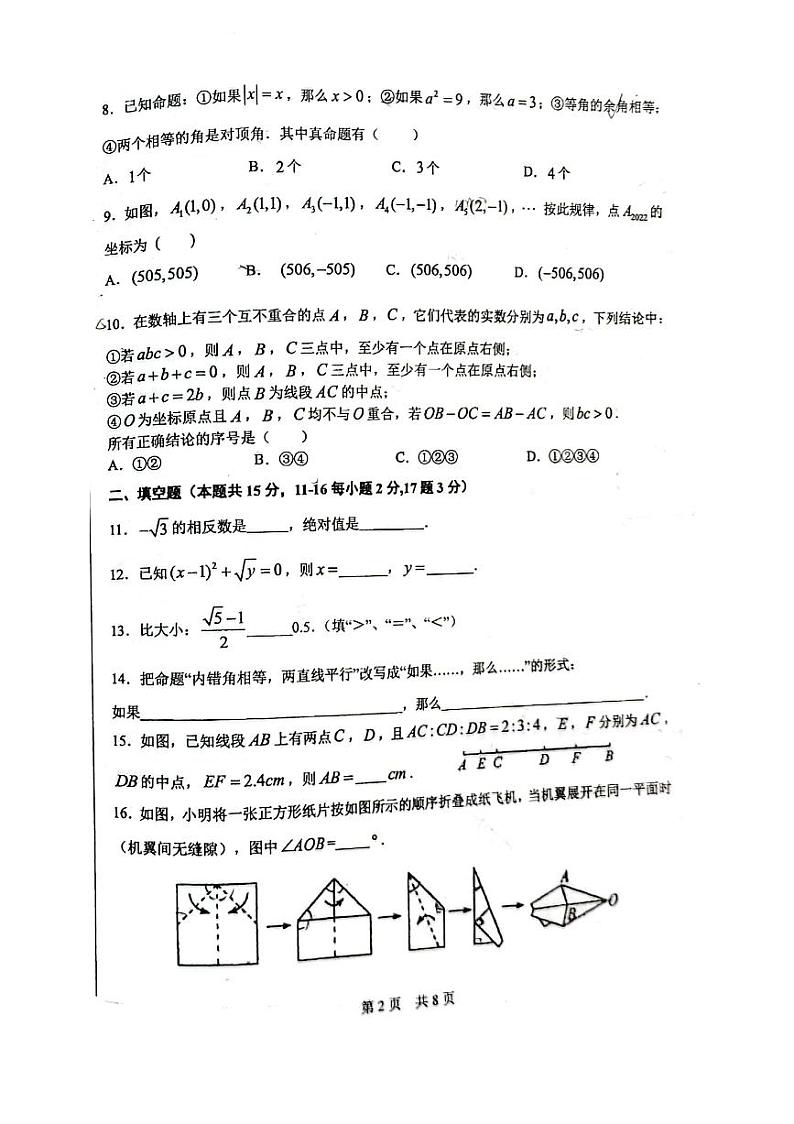 8．已知命题：①如果|x|=x，那么x>0；②如果a²=9，那么a=3；③等角的余角相等；
④两个相等的角是对顶角．其中真命题有（　　）
A．1个　B．2个　C．3个　D．4个
9．如图，A₁(1,0)，A₂(1,1)，A₃(−1,1)，A₄(−1,−1)，A₅(2,−1)，… 按此规律，点A₂₀₂₂的
坐标为（　　）
A．(505,505)　B．(506,−505)　C．(506,506)　D．(−506,506)
10．在数轴上有三个互不重合的点A，B，C，它们代表的实数分别为a,b,c，下列结论中：
①若abc>0，则A，B，C三点中，至少有一个点在原点右侧；
②若a+b+c=0，则A，B，C三点中，至少有一个点在原点右侧；
③若a+c=2b，则点B为线段AC的中点；
④O为坐标原点且A，B，C均不与O重合，若OB−OC=AB−AC，则bc>0．
所有正确结论的序号是（　　）
A．①②　B．③④　C．①②③　D．①②③④
二、填空题（本题共15分，11-16每小题2分,17题3分）
11．−√3的相反数是_____，绝对值是________．
12．已知(x−1)²+√y=0，则x=______，y=______．
13．比大小：(√5−1)/2 _____0.5．（填“>”、“=”、“<”）
14．把命题“内错角相等，两直线平行”改写成“如果……，那么……”的形式：
如果______________________________，那么______________________．
15．如图，已知线段AB上有两点C，D，且AC:CD:DB=2:3:4，E，F分别为AC，
A E C D F B
DB的中点，EF=2.4cm，则AB=____cm．
16．如图，小明将一张正方形纸片按如图所示的顺序折叠成纸飞机，当机翼展开在同一平面时
（机翼间无缝隙），图中∠AOB=____°．
A
O
B
第2页　共8页